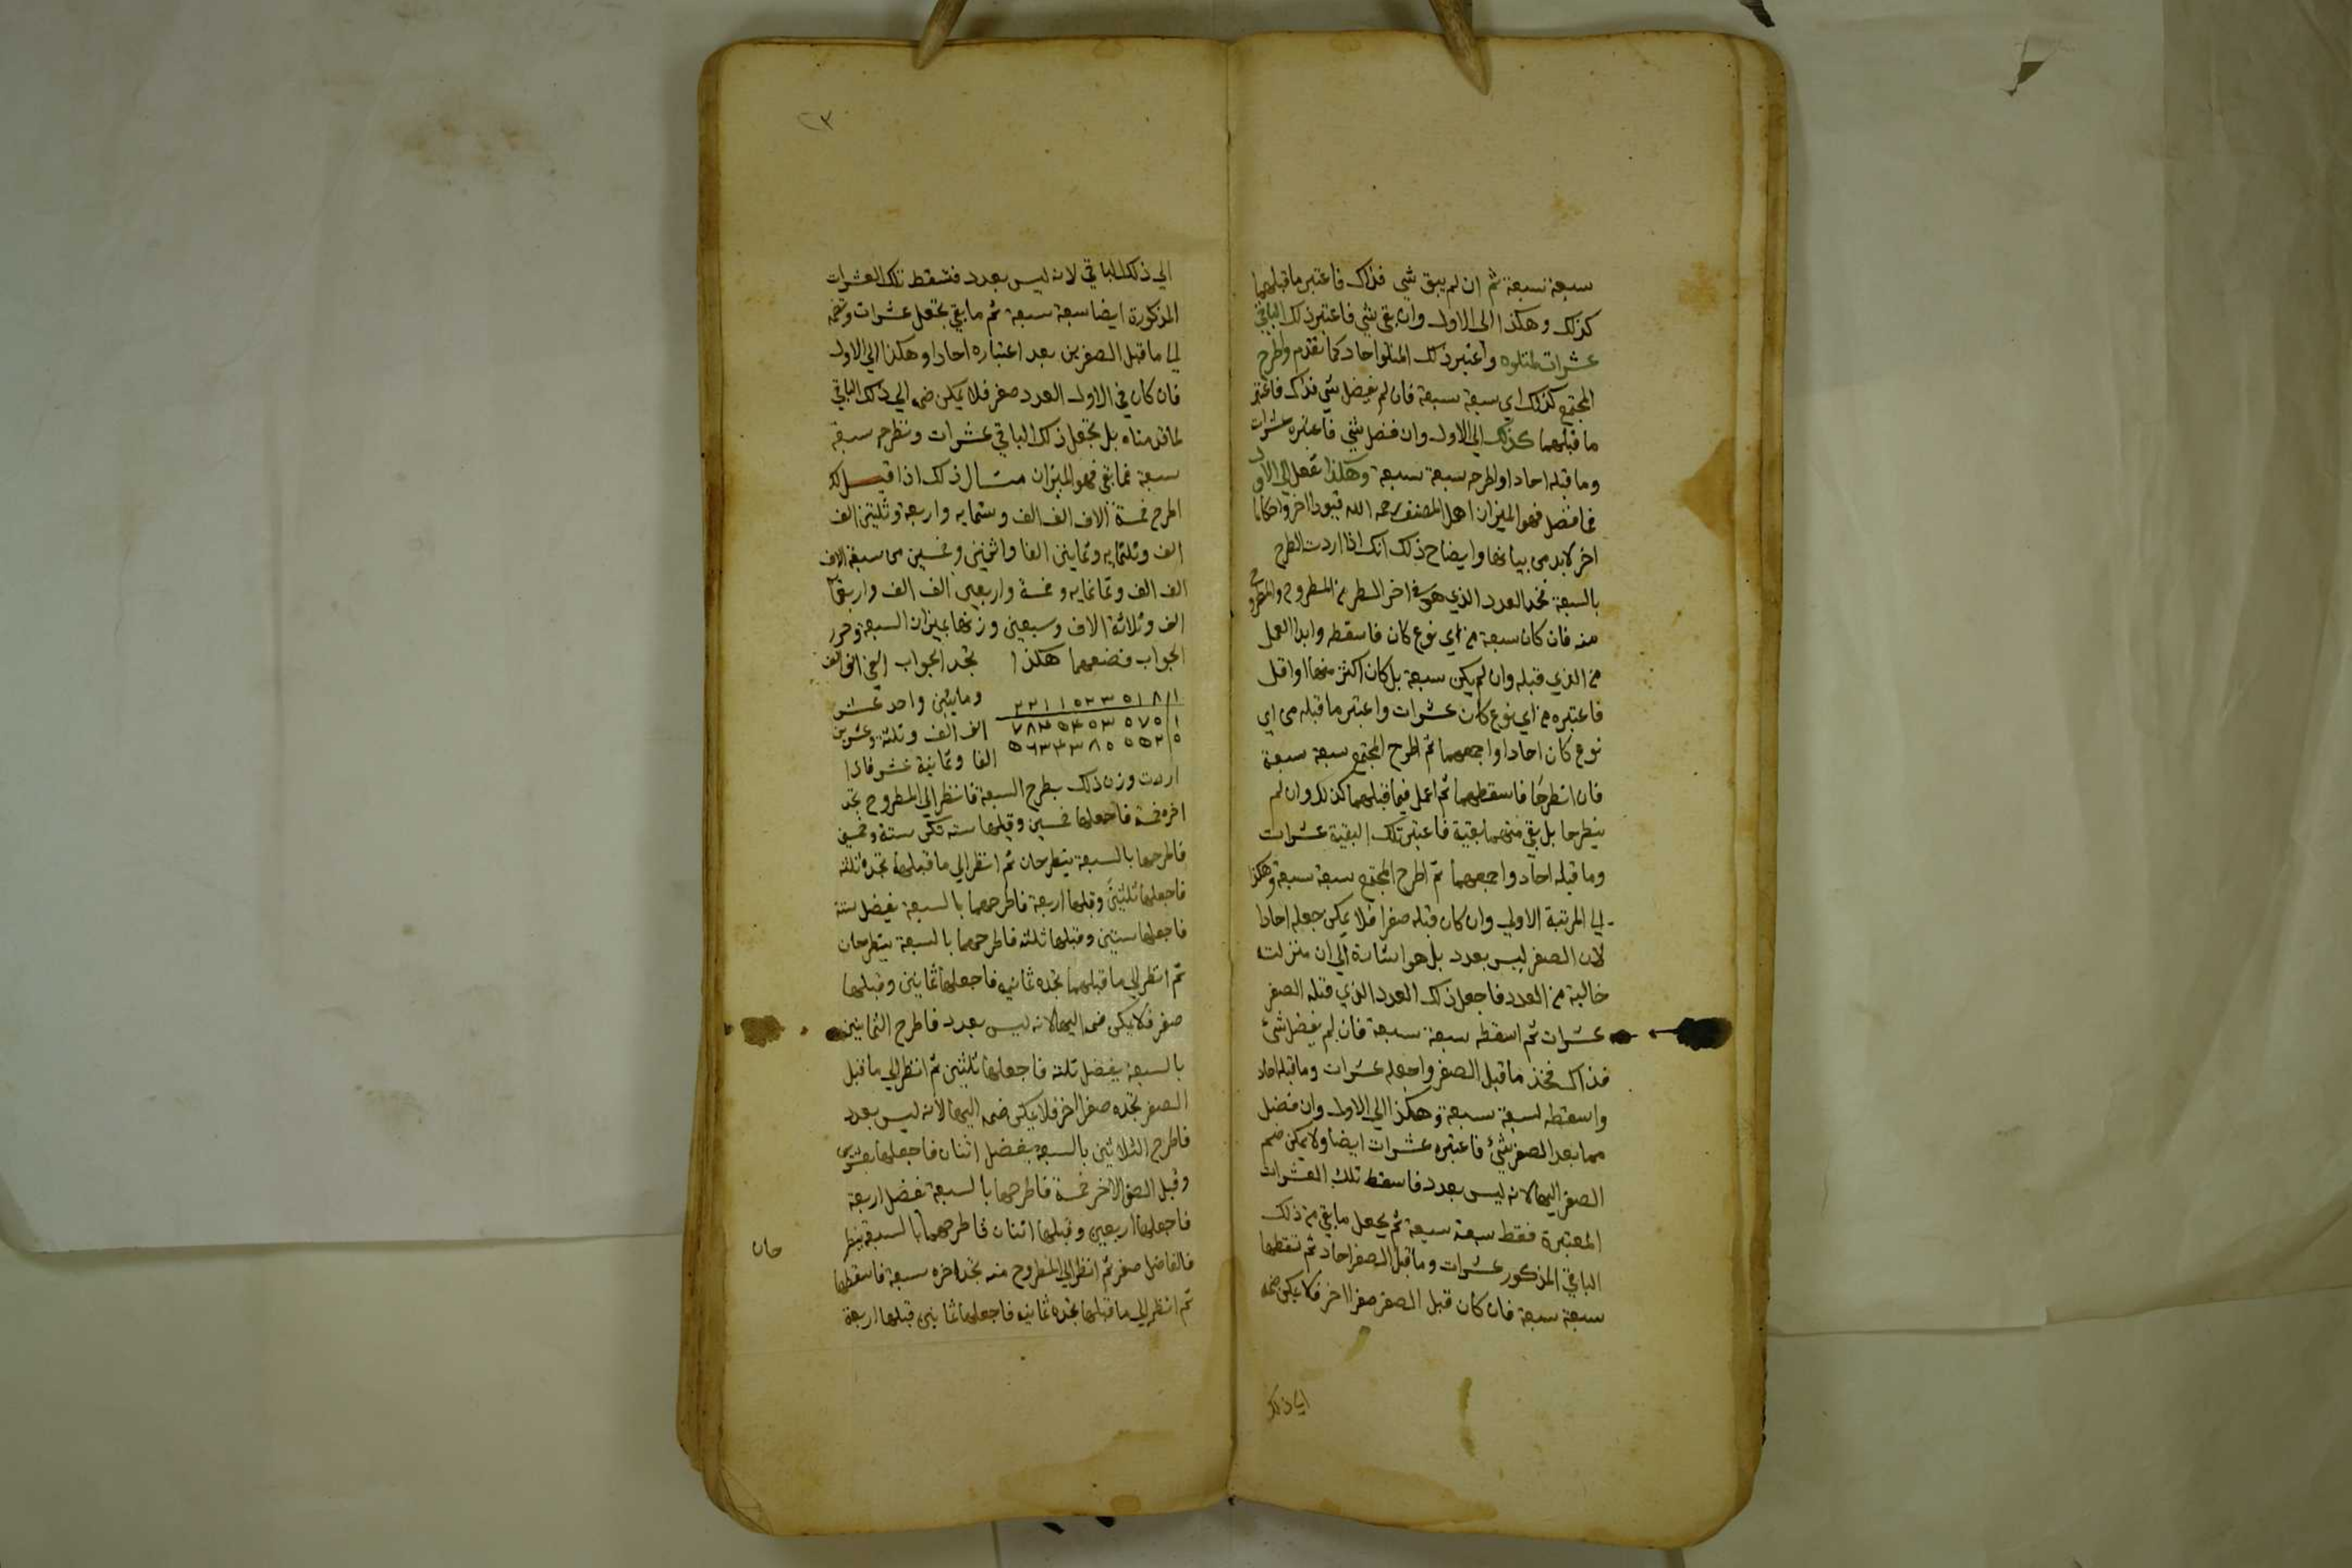 سبعة سبعة ثم ان لم يبق شي فذاك فاعتبر ما قبلهما
كذلك وهكذا الى الاول وان بقي شي فاعتبر ذلك الباقي
عشرات لمتلوه واعتبر ذلك المتلو احاد كما تقدم واطرح
المجتمع كذلك اي سبعة سبعة فان لم يفضل شي فذاك فاعتبر
ما قبلهما كذلك الي الاول وان فضل شي فاعتبره عشرات
وما قبله احادا واطرحه سبعة سبعة وهكذا تفعل الي الاول
فما فضل فهو الميزان اهل المصنف رحمه الله قيودا اخر واحكاما
اخر لابد من بيانها وايضاح ذلك انك اذا اردت الطرح
بالسبعة فخذ العدد الذي هو في اخر السطر من المطروح والمطروح
منه فان كان سبعة من اي نوع كان فاسقطه وابدا العمل
من الذي قبله وان لم يكن سبعة بل كان اكثر منها او اقل
فاعتبره من اي نوع كان عشرات واعتبر ما قبله من اي
نوع كان احادا واجمعهما ثم اطرح المجتمع سبعة سبعة
فان انطرحا فاسقطهما ثم اعمل فيما قبلهما كذلك وان لم
ينطرحا بل بقي منهما بقية فاعتبر تلك البقية عشرات
وما قبله احاد واجمعهما ثم اطرح المجتمع سبعة سبعة وهكذا
الي المرتبة الاولي وان كان قبله صفرا فلا يمكن جعله احادا
لان الصفر ليس بعدد بل هو اشارة الي ان منزلته
خالية من العدد فاجعل ذلك العدد الذي قبله الصفر
عشرات ثم اسقطه سبعة سبعة فان لم يفضل شئ
فذاك فخذ ما قبل الصفر واجعله عشرات وما قبله احاد
واسقطه سبعة سبعة وهكذا الي الاول وان فضل
مما بعد الصفر شئ فاعتبره عشرات ايضا ولا يمكن ضم
الصفر اليها لانه ليس بعدد فاسقط تلك العشرات
المعتبرة فقط سبعة سبعة ثم يجعل ما بقي من ذلك
الباقي المذكور عشرات وما قبل الصفر احاد ثم تسقطها
سبعة سبعة فان كان قبل الصفر صفرا اخر فلا يمكن ضمه
الي ذلك
٢٣
الي ذلك الباقي لانه ليس بعدد فتسقط تلك العشرات
المذكورة ايضا سبعة سبعة ثم ما بقي تجعل عشرات وتضمه
لما ما قبل الصفرين بعد اعتباره احادا وهكذا الي الاول
فان كان في الاول العدد صفر فلا يمكن ضمه الي ذلك الباقي
لما قدمناه بل تجعل ذلك الباقي عشرات وتطرحه سبعة
سبعة فما بقي فهو الميزان مثال ذلك اذا قيل لك
اطرح خمسة الاف الف الف وستمايه واربعة وثلثين الف
الف وثلثمايه وثمانين الفا واثنين وخمسين من سبعة الاف
الف الف وثمانمايه وخمسة واربعين الف الف واربعمائة
الف وثلاثة الاف وسبعين وزنها بميزان السبعة وحرر
الجواب فضعهما هكذا تجد الجواب الفي الف الف
ومايتين واحد عشر
الف الف وثلثة وعشرين
الفا وثمانية عشر فاذا
٢٢١١٥٢٣٥١٨/١
٧٨٤٥٤٥٣٥٧٥/١
٥٦٣٤٣٨٥٥٥٢/٥
اردت وزن ذلك بطرح السبعة فانظر الي المطروح تجد
اخره خمسة فاجعلها خمسين وقبلها سته تكن ستة وخمسين
فاطرحها بالسبعة ينطرحان ثم انظر الي ما قبلهما تجده ثلثه
فاجعلها ثلثين وقبلها اربعة فاطرحهما بالسبعة يفضل ستة
فاجعلها ستين وقبلها ثلثه فاطرحهما بالسبعة ينطرحان
ثم انظر الي ما قبلهما تجده ثمانيه فاجعلها ثمانين وقبلها
صفر فلا يمكن ضمه اليها لانه ليس بعدد فاطرح الثمانين
بالسبعة يفضل ثلثه فاجعلها ثلثين ثم انظر الي ما قبل
الصفر تجده صفرا اخر فلا يمكن ضمه اليها لانه ليس بعدد
فاطرح الثلاثين بالسبعة يفضل اثنان فاجعلها عشرين
وقبل الصفر الاخر خمسة فاطرحها بالسبعة تفضل اربعة
فاجعلها اربعين وقبلها اثنان فاطرحهما بالسبعة ينطر
حان
فالفاضل صفر ثم انظر الي المطروح منه تجد اخره سبعة فاسقطها
ثم انظر الي ما قبلها تجده ثمانيه فاجعلها ثمانين قبلها اربعة